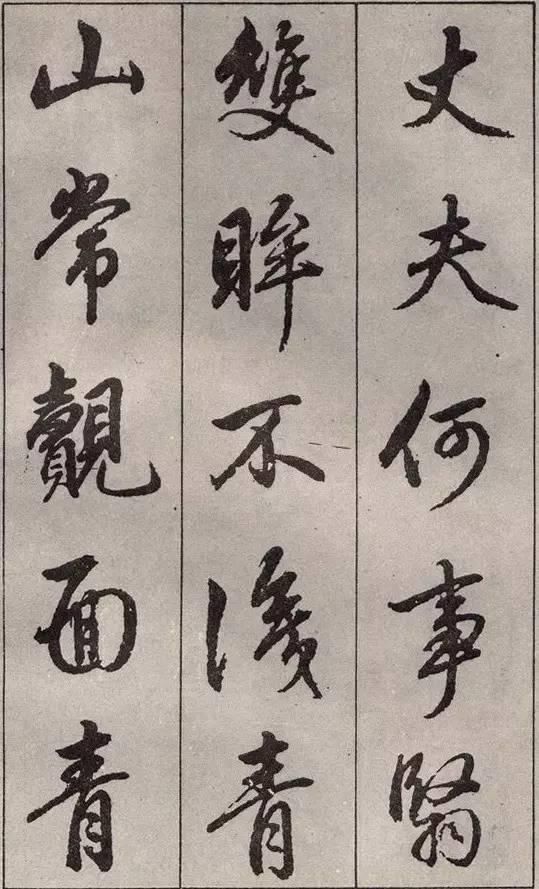 丈夫何事翳
雙眸不青
山常覿面青